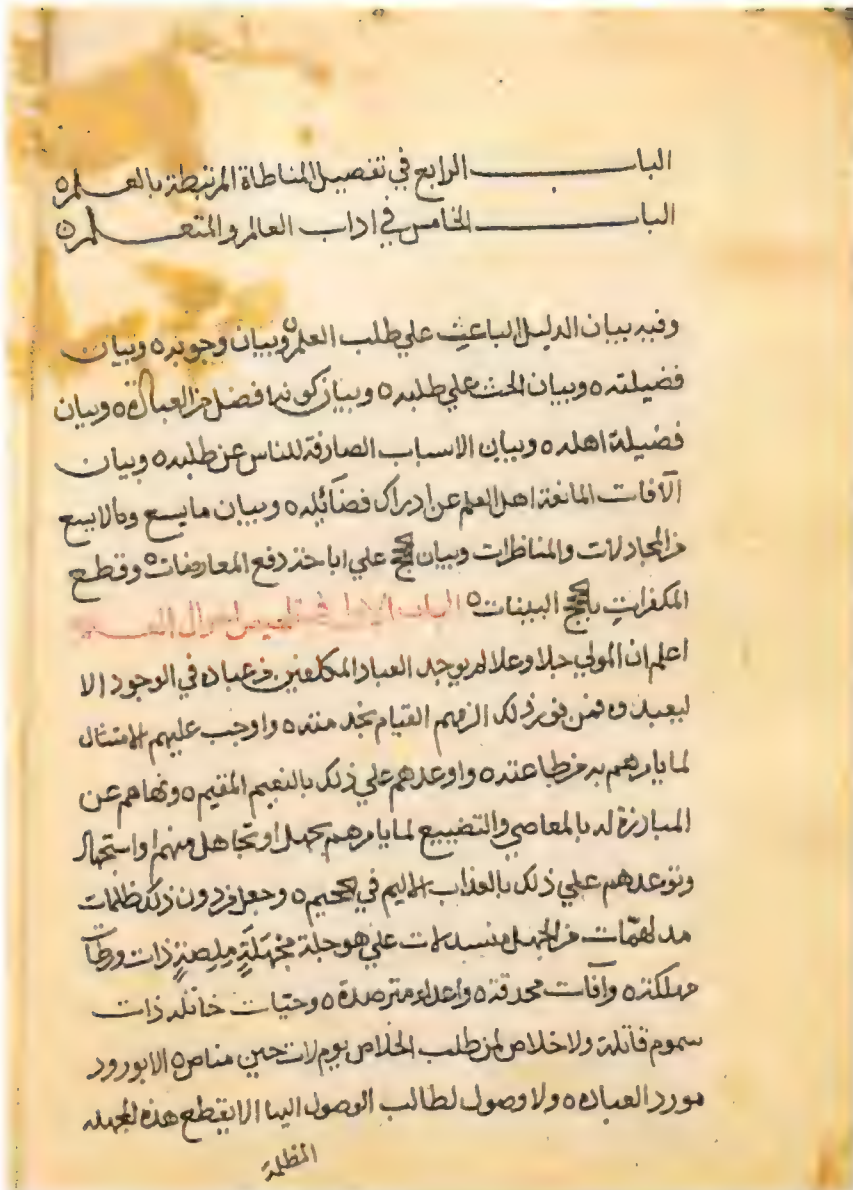 الباب الرابع في تفصيل المناطاة المرتبطة بالعلم ه
الباب الخامس في اداب العالم والمتعلم ه
وفيه بيان الدليل الباعث علي طلب العلم ه وبيان وجوبه ه وبيان
فضيلته ه وبيان الحث علي طلبه ه وبيان كونه افضل من العبادة ه وبيان
فضيلة اهله ه وبيان الاسباب الصارفة للناس عن طلبه ه وبيان
الآفات المانعة اهل العلم عن ادراك فضآئله ه وبيان ما يسع وما لا يسع
من المجادلات والمناظرات وبيان الحجج علي اباحة دفع المعارضات ه وقطع
المكفرات بالحجج البينات ه الباب الاول في
اعلم ان المولي جلا وعلا لم يوجد العباد المكلفين من عباده في الوجود الا
ليعبدوه فمن فور ذلك الزمهم القيام بحد منته ه واوجب عليهم الامتثال
لما يامرهم به من طاعته ه واوعدهم علي ذلك بالنعيم المقيم ه ونهاهم عن
المبارزة له بالمعاصي والتضييع لما يامرهم بجهل او تجاهل منهم او استجهال
وتوعدهم علي ذلك بالعذاب الاليم في الجحيم ه وجعل من دون ذلك ظلمات
مدلهمّات من الجهل منسدلات علي هوجلة مجهلةٍ ملصةٍ ذات ورطات
مهلكة ه وآفات محدقة ه واعداء مترصدة ه وحيّات خاتله ذات
سموم قاتلة ولا خلاص لمن طلب الخلاص يوم لات حين مناص ه الا بورود
مورد العباده ه ولا وصول لطالب الوصول اليها الا بقطع هذه المجهله
المظلمة